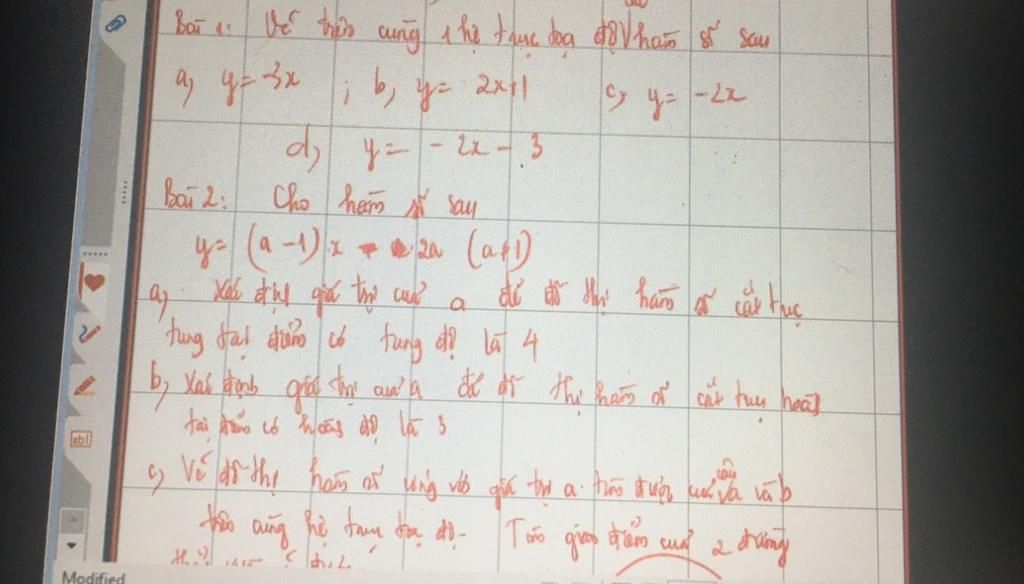 Bài 1: Vẽ trên cùng 1 hệ trục tọa độ hàm số sau
a, y = -3x ; b, y = 2x+1 c, y = -2x
d, y = -2x - 3
Bài 2: Cho hàm số sau
y = (a-1) x 2a (a≠1)
a, Xác định giá trị của a để đồ thị hàm số cắt trục
tung tại điểm có tung độ là 4
b, Xác định giá trị của a để đồ thị hàm số cắt trục hoành
tại điểm có hoành độ là 3
c, Vẽ đồ thị hàm số ứng với giá trị a tìm được của câu a và b
trên cùng hệ trục tọa độ. Tìm giao điểm của 2 đường
Modified